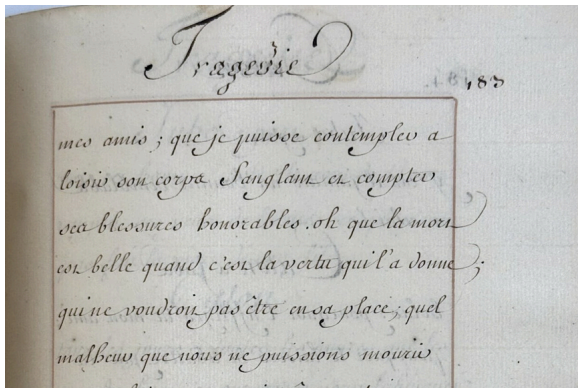 Tragedie
183
mes amis ; que je puisse contempler a
loisir son corps sanglant et compter
ses blessures honorables. oh que la mort
est belle quand c'est la vertu qui l'a donne ;
qui ne voudroit pas être en sa place ; quel
malheur que nous ne puissions mourir